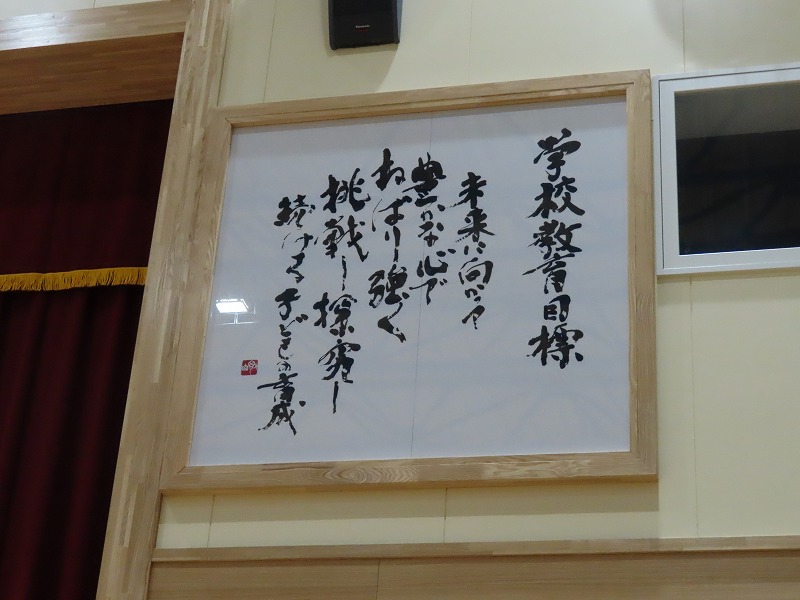 学校教育目標
未来に向かって
豊かな心で
ねばり強く
挑戦し探究し
続ける子どもの育成
Panasonic